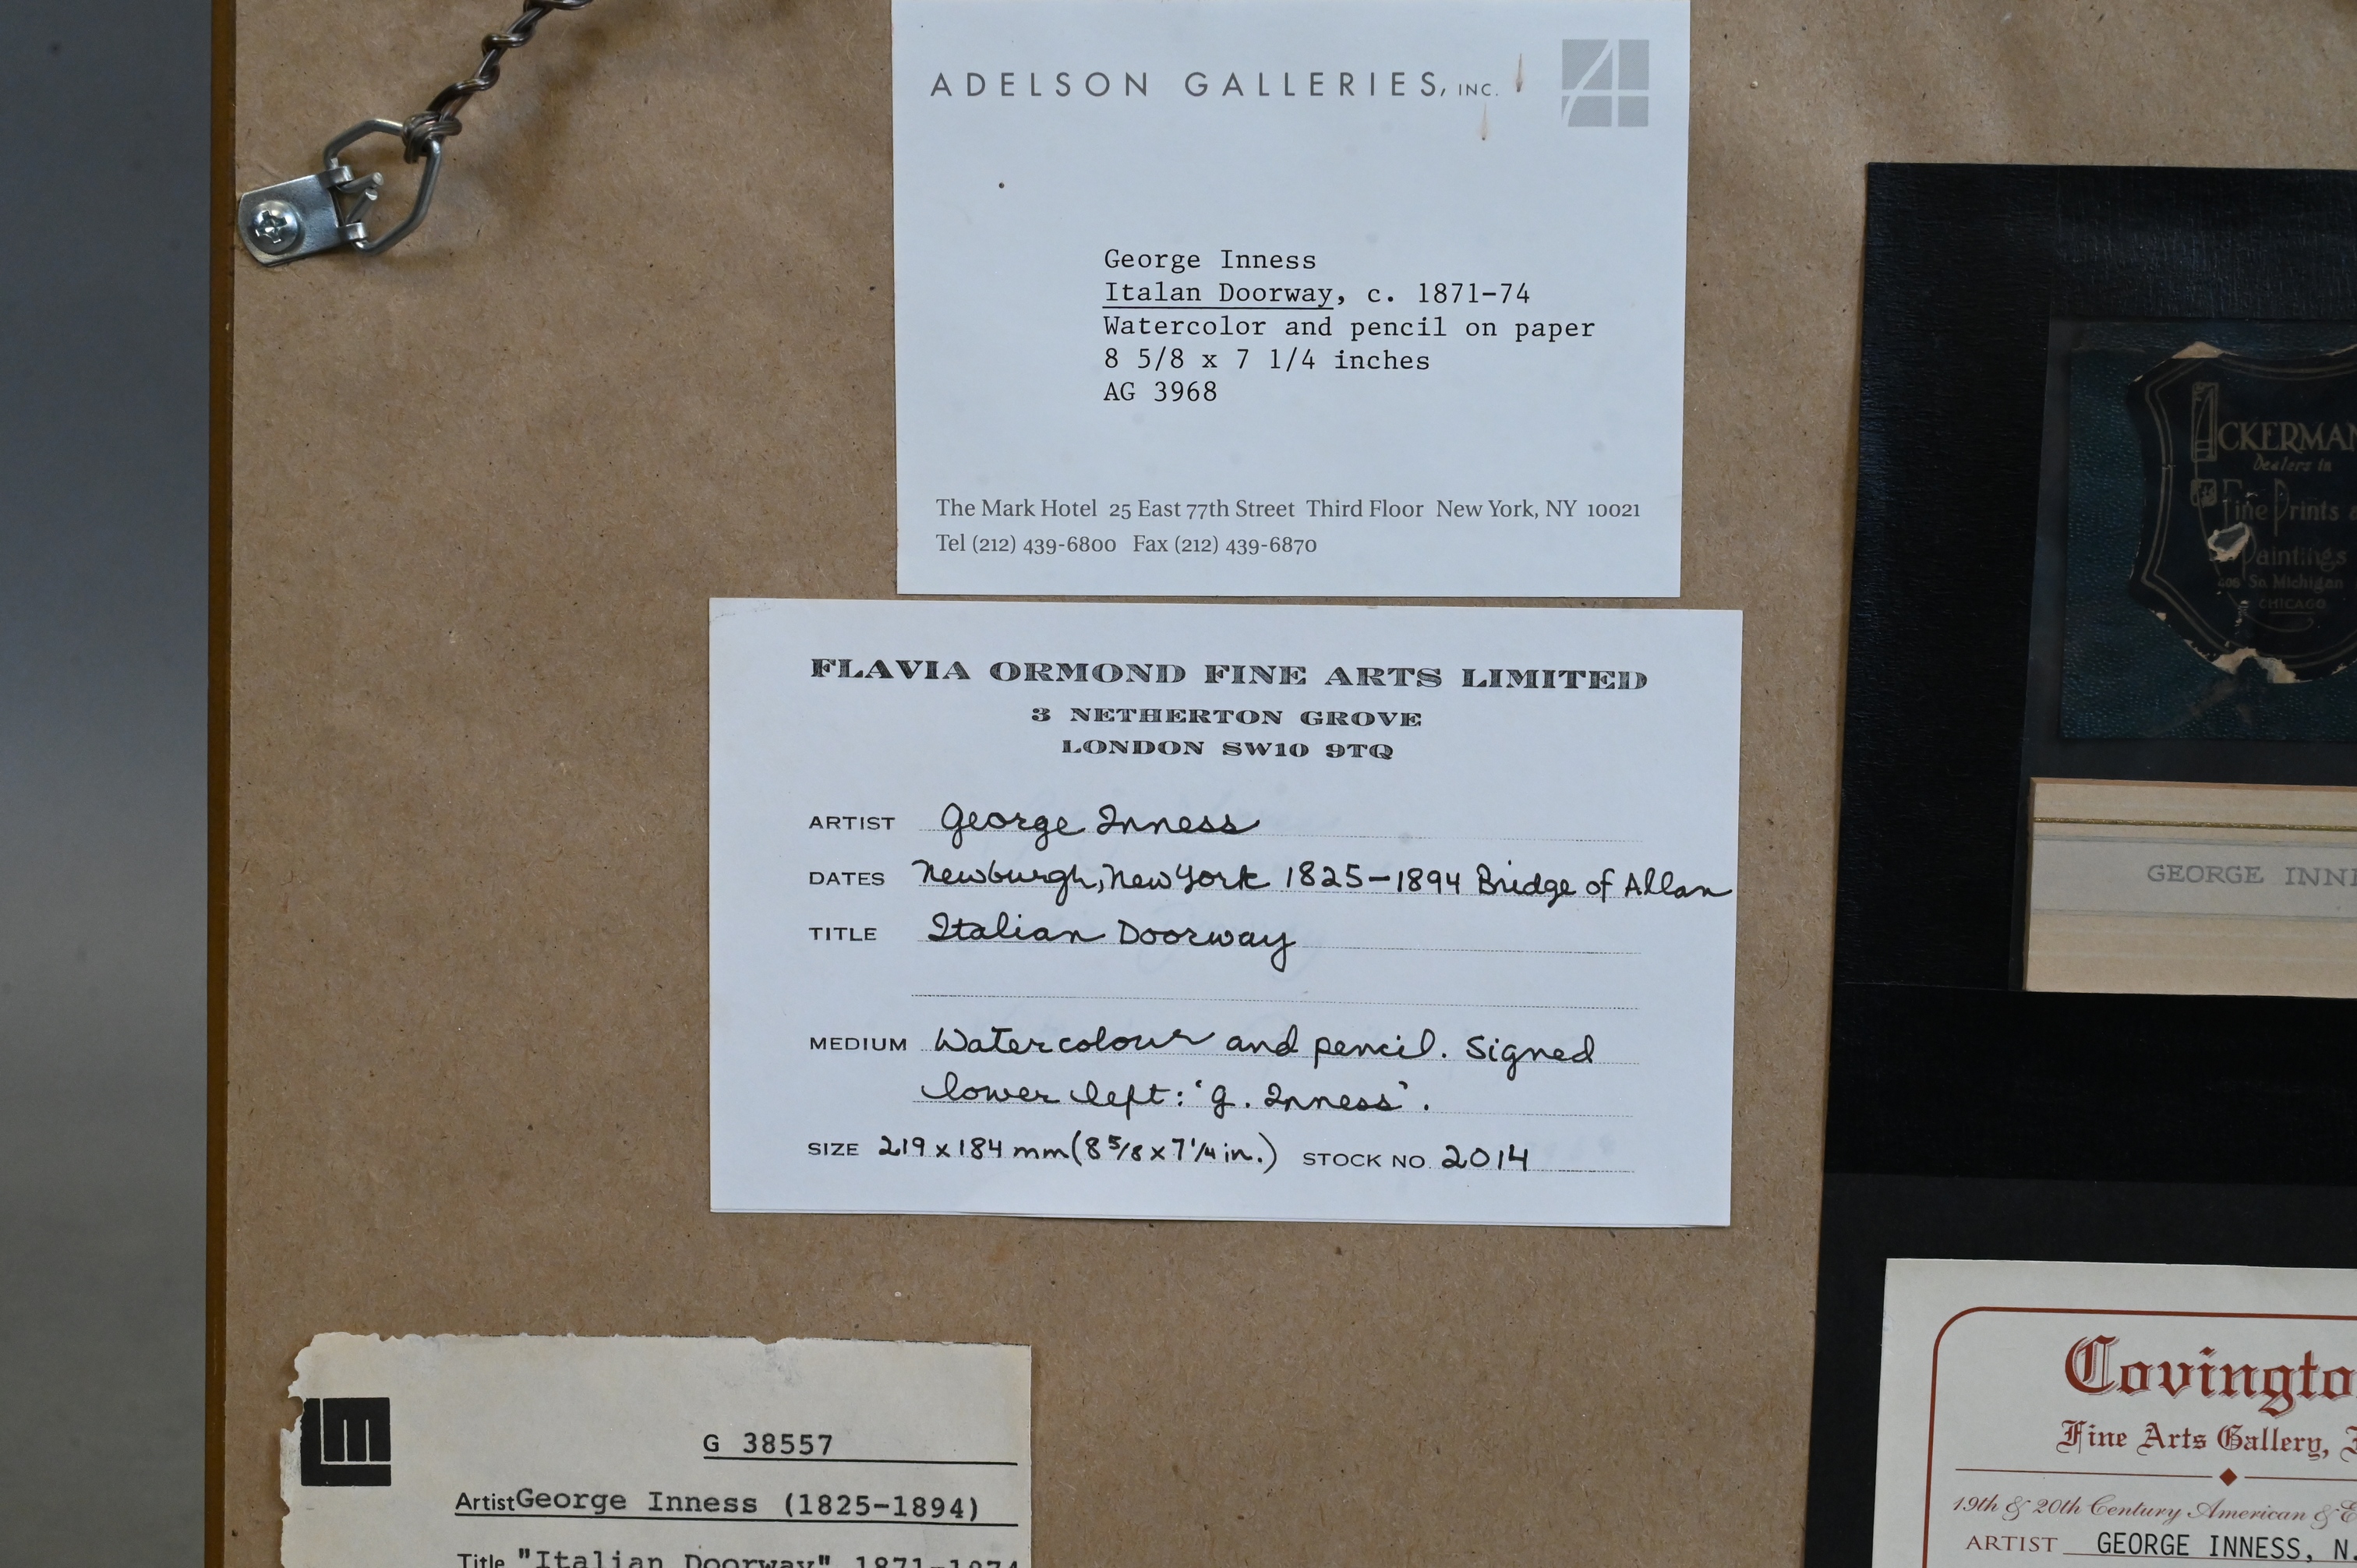 ADELSON GALLERIES, INC.
George Inness
Italan Doorway, c. 1871-74
Watercolor and pencil on paper
8 5/8 x 7 1/4 inches
AG 3968
The Mark Hotel 25 East 77th Street Third Floor New York, NY 10021
Tel (212) 439-6800 Fax (212) 439-6870
FLAVIA ORMOND FINE ARTS LIMITED
3 NETHERTON GROVE
LONDON SW10 9TQ
ARTIST George Inness
DATES Newburgh, New York 1825-1894 Bridge of Allan
TITLE Italian Doorway
MEDIUM Watercolour and pencil. Signed
lower left: 'G. Inness'.
SIZE 219 x 184 mm (8 5/8 x 7 1/4 in.) STOCK NO. 2014
G 38557
Artist George Inness (1825-1894)
Title "Italian Doorway" 1871-1874
ACKERMAN
Dealers in
Fine Prints &
Paintings
So. Michigan
CHICAGO
GEORGE INNE
Covingto
Fine Arts Gallery,
19th & 20th Century American & E
ARTIST GEORGE INNESS, N.